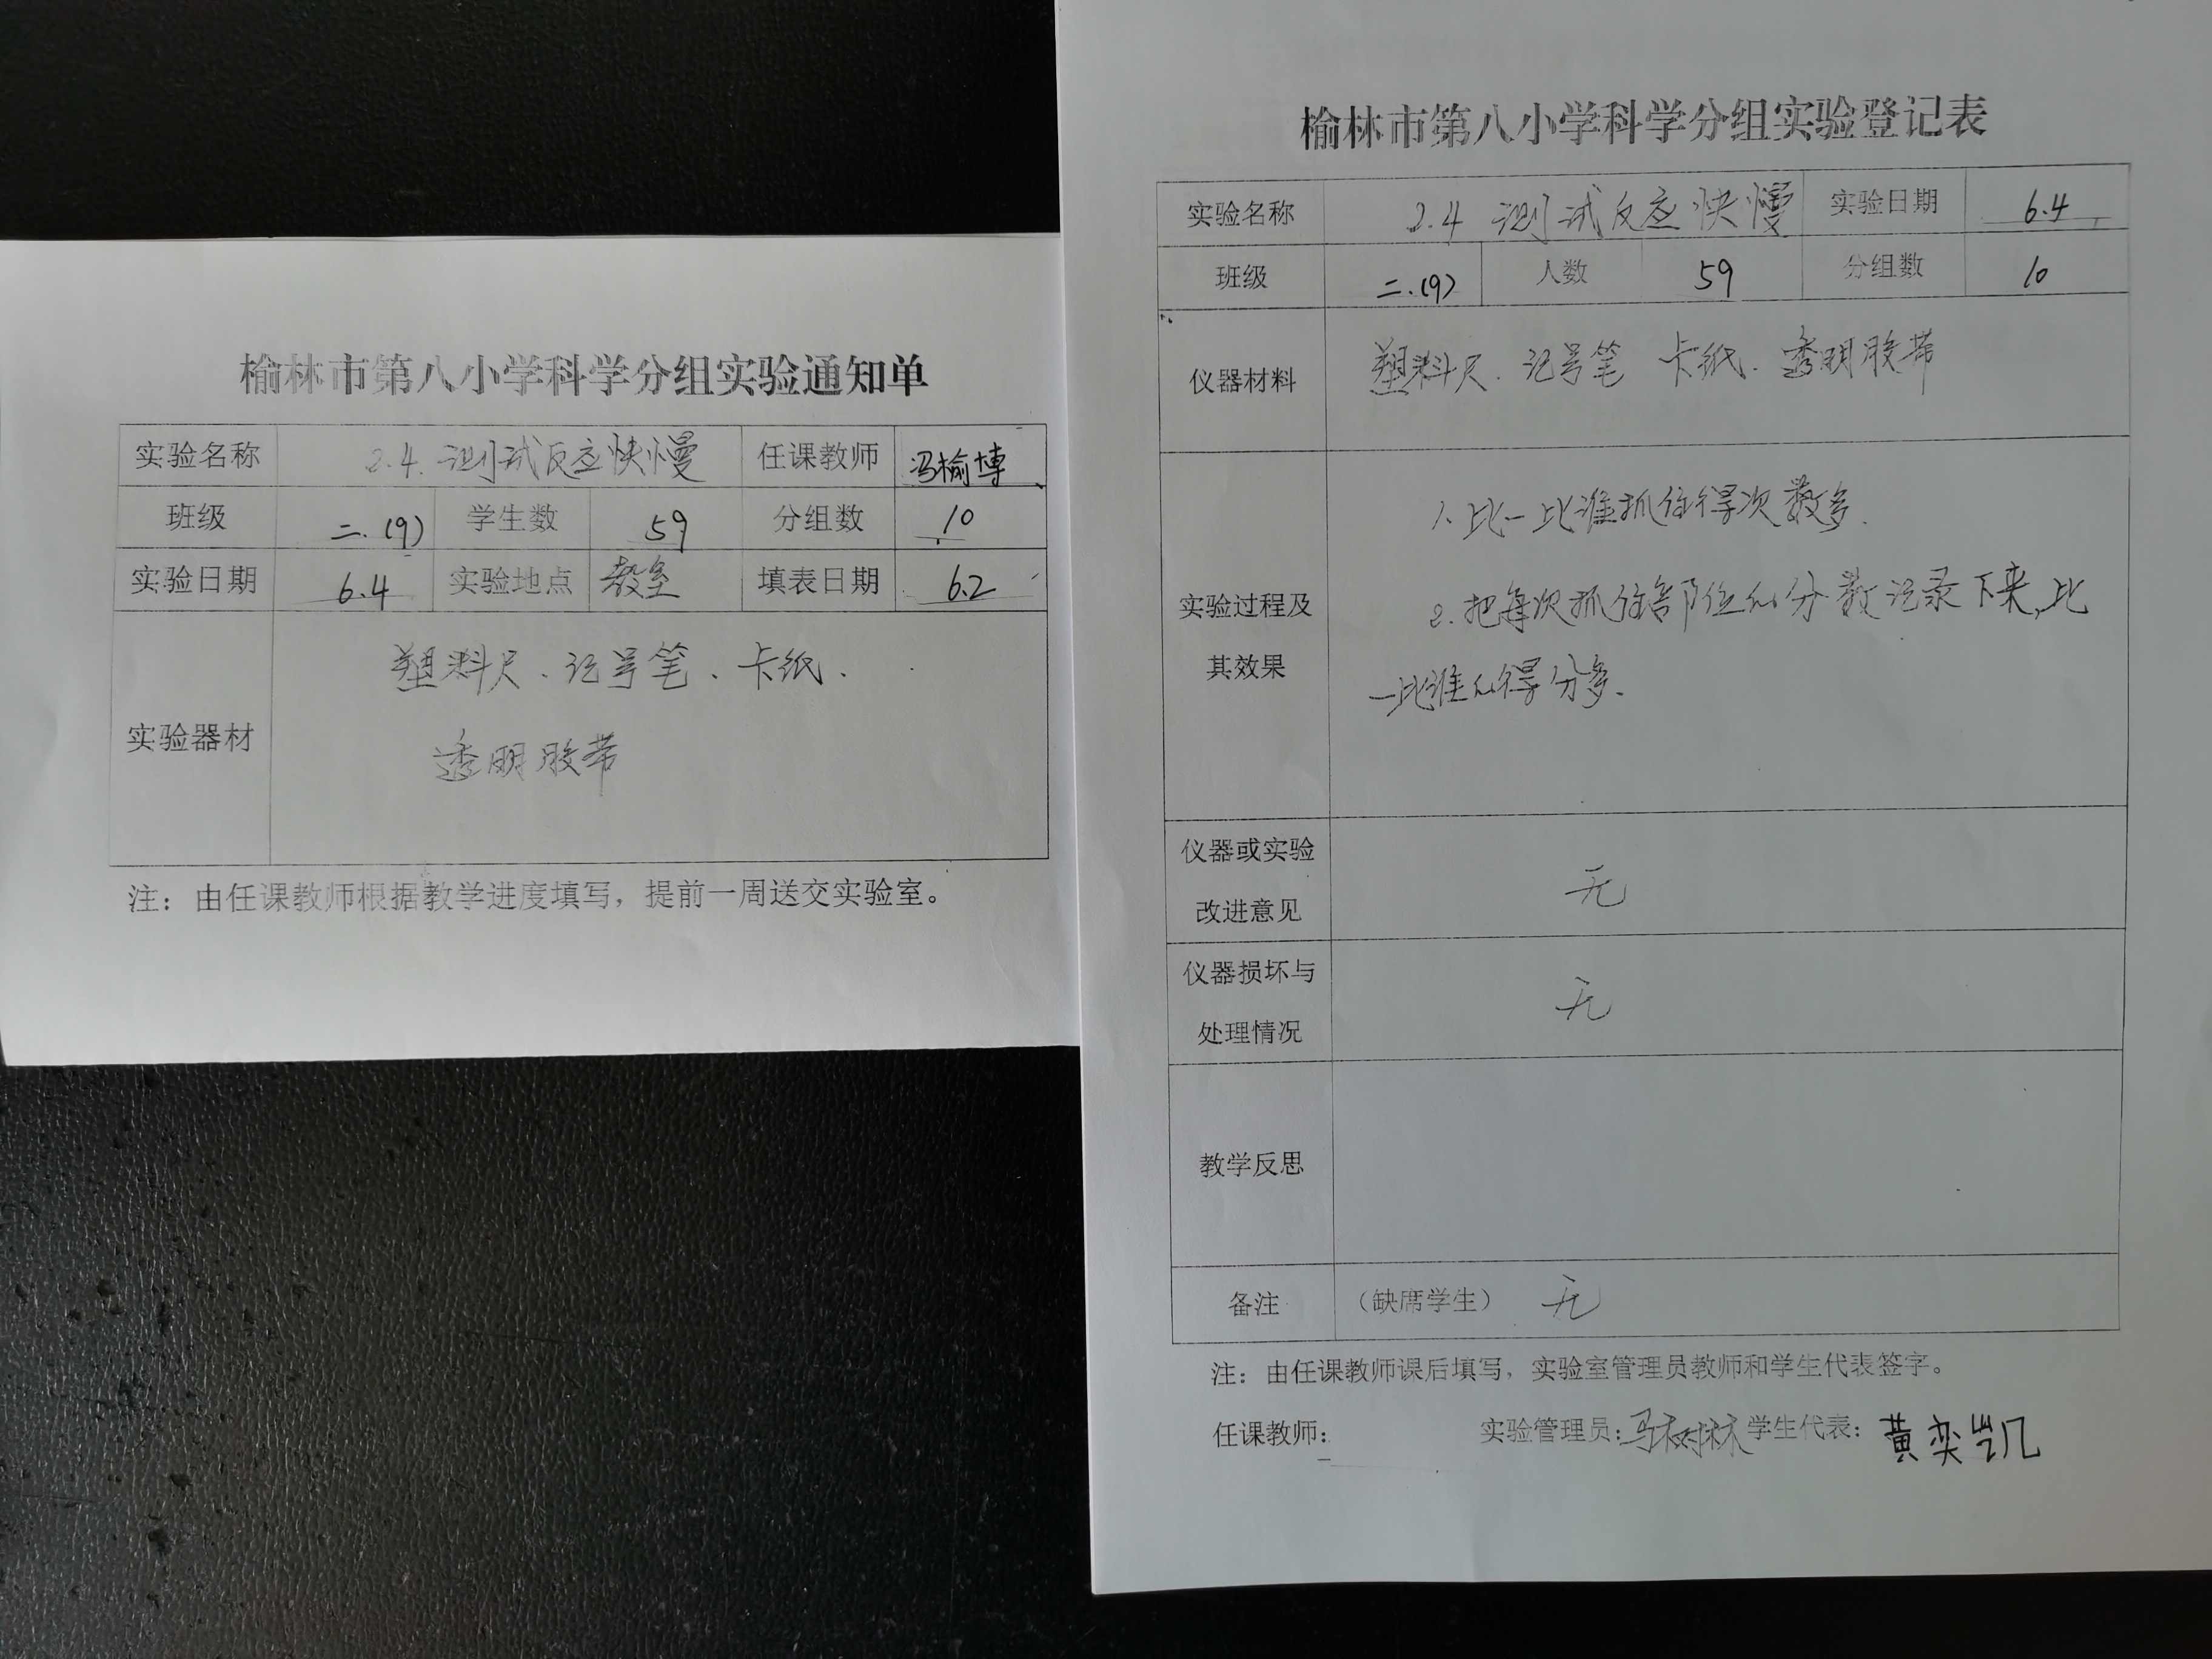 榆林市第八小学科学分组实验通知单
实验名称 2.4. 测试反应快慢 任课教师 冯榆博
班级 二.(9) 学生数 59 分组数 10
实验日期 6.4 实验地点 教室 填表日期 6.2
实验器材 塑料尺、记号笔、卡纸、
透明胶带
注：由任课教师根据教学进度填写，提前一周送交实验室。
榆林市第八小学科学分组实验登记表
实验名称 2.4 测试反应快慢 实验日期 6.4
班级 二.(9) 人数 59 分组数 10
仪器材料 塑料尺、记号笔 卡纸、透明胶带
实验过程及
其效果
1. 比一比谁抓住得次数多.
2. 把每次抓住部位的分数记录下来,比
一比谁的得分多.
仪器或实验
改进意见
无
仪器损坏与
处理情况
无
教学反思
备注 （缺席学生） 无
注：由任课教师课后填写，实验室管理员教师和学生代表签字。
任课教师： 实验管理员：马树林 学生代表：黄奕凯